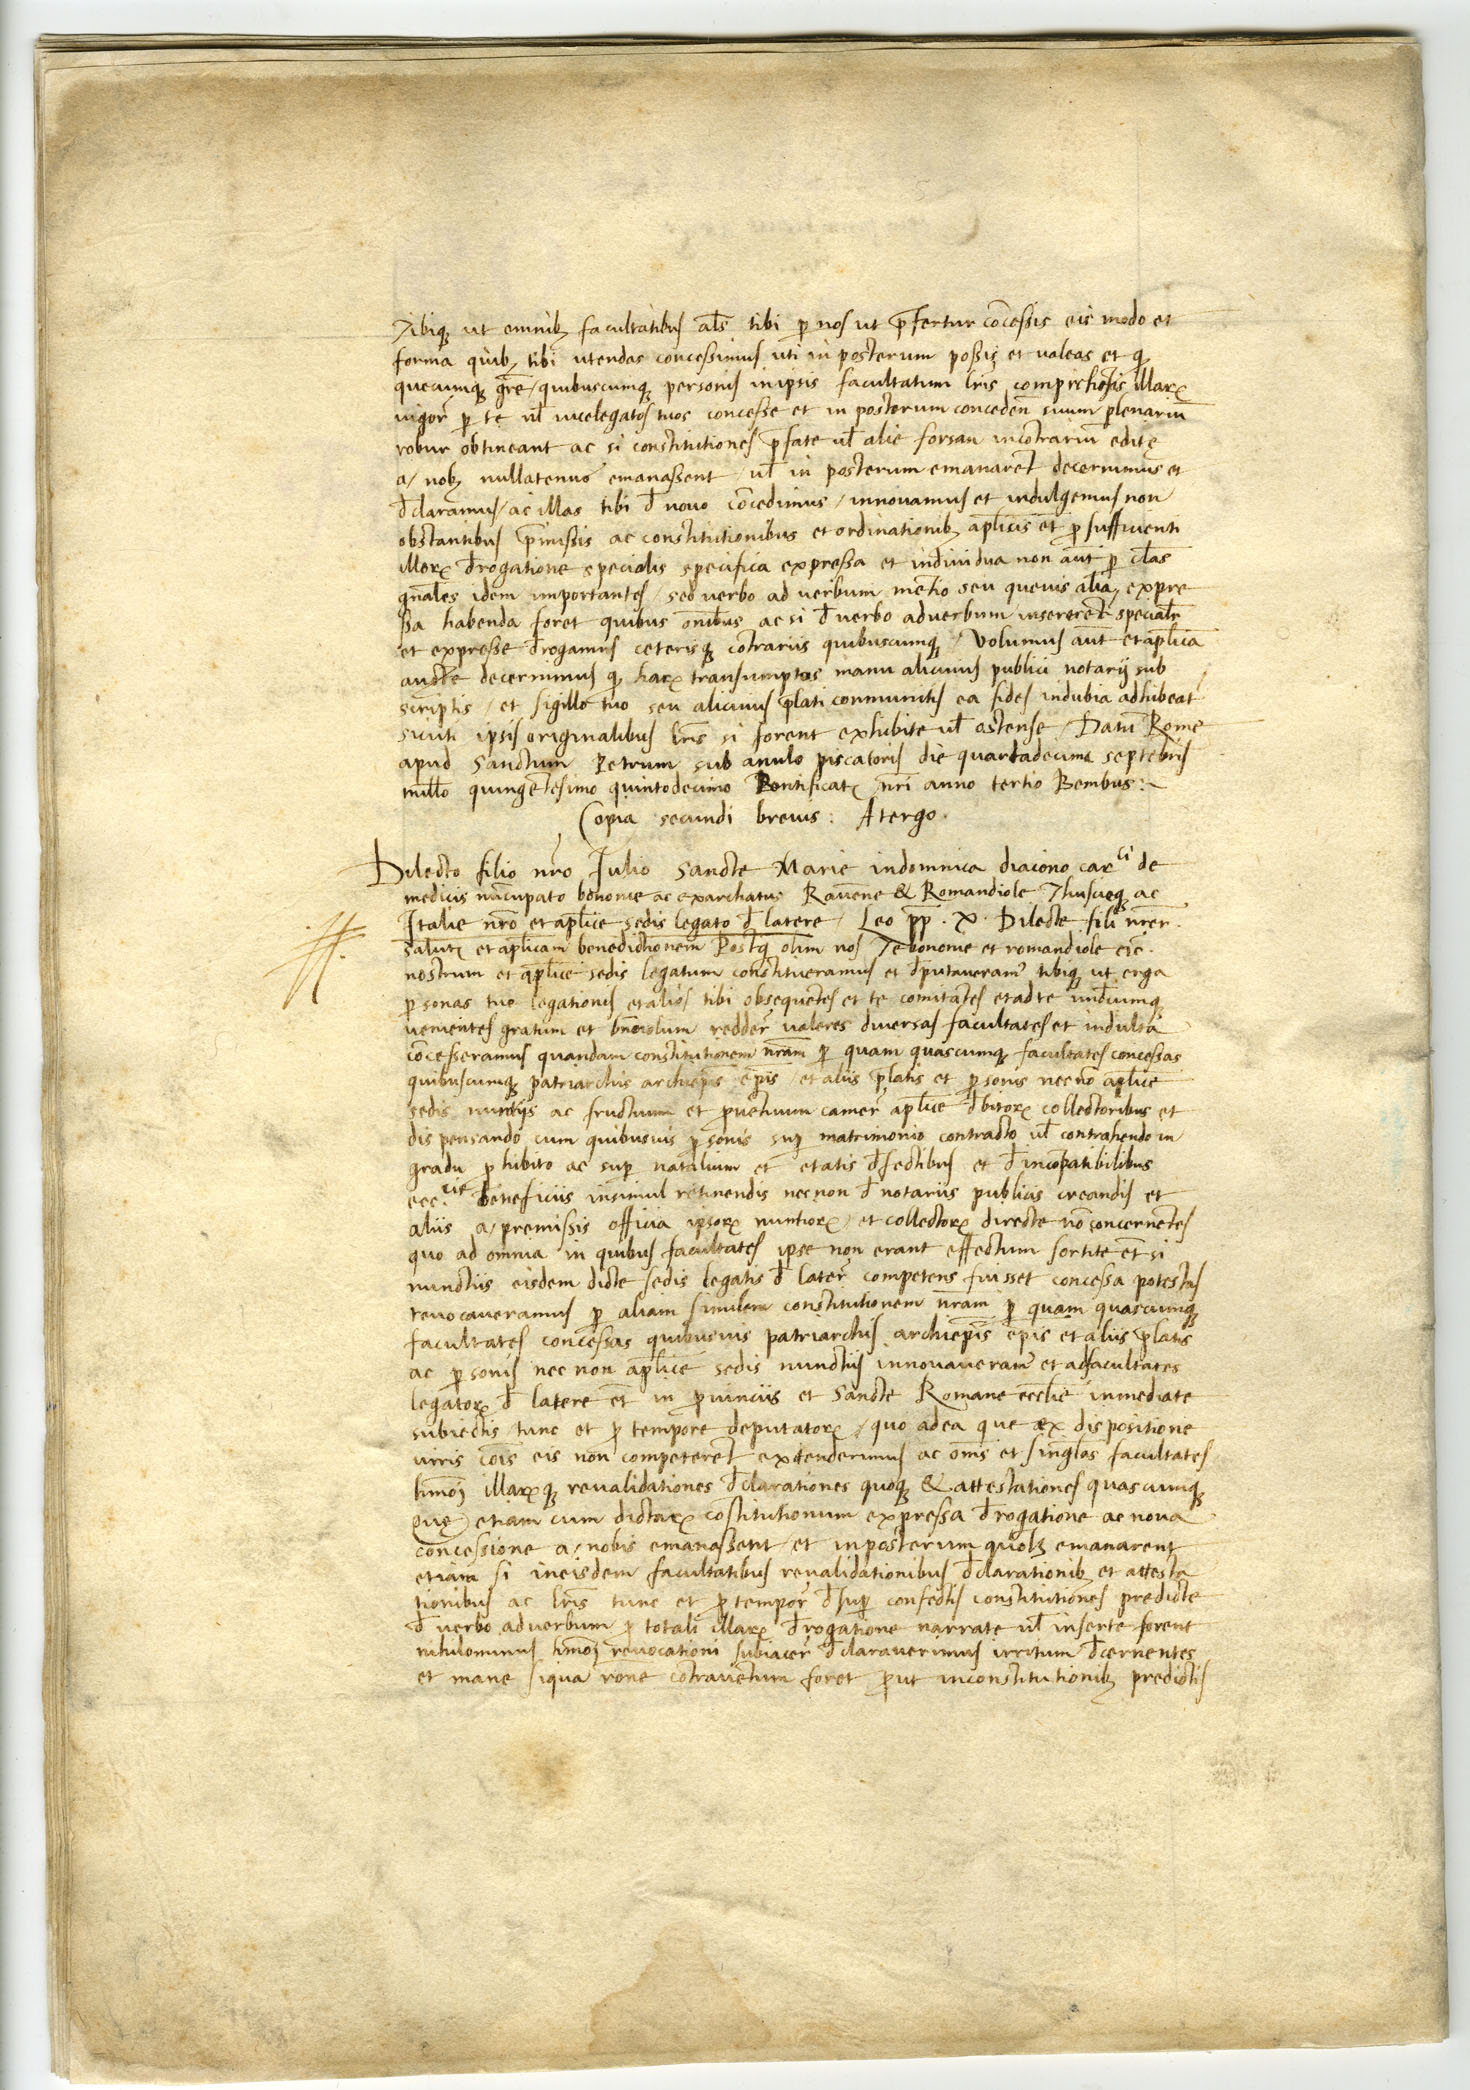 Tibiq ut omnib facultatibus als tibi p nos ut pfertur cōcessis eis modo et
forma quib tibi utendas concessimus uti in posterum possis et valeas et q
quecumq gre / quibuscumq personis in ipsis facultatum lris comprehesis illar
vigor p te ul vicelegatos tuos concesse et in posterum conceden suum plenariu
robur obtineant ac si constitutiones pfate ul alie forsan incontrariu edite
a / nob nullatenus emanassent / ul in posterum emanaret decernimus et
dclaramus / ac illas tibi d novo cōcedimus / innovamus et indulgemus non
obstantibus pmissis ac constitutionibus et ordinationib aplicis et p sufficienti
illor drogatione specialis specifica expressa et individua non aut p clas
gnales idem importantes / sed verbo ad verbum mētio seu quevis alia expre
ssa habenda foret quibus onibus ac si d verbo adverbum insereret specialr
et expresse drogamus ceterisq cōtrariis quibuscumq / Volumus aut et aplica
aucte decernimus q har transumptis manu alicuius publici notarij sub
scriptis / et sigillo tuo seu alicuius plati conmunitis ea fides indubia adhibeat
sicuti ipsis originalibus lris si forent exhibite ul ostense / Datu Rome
apud Sanctum Petrum sub anulo piscatoris die quartadecima septēbris
millo quingētesimo quintodecimo Pontificat nri anno tertio Bembus :~
Copia secundi brevis : A tergo .
Dilecto filio nro Iulio Sancte Marie indomnica diacono car^(li) de
medicis nūcupato bononie ac exarchatus Ravēne & Romandiole Thuscieq ac
Italie nro et aplice sedis legato d latere / Leo pp . X . Dilecte fili nr
salut et aplicam benedictionem Postq olim nos Te bononie et romandiole etc .
nostrum et aplice sedis legatum constitueramus et dputaveram tibiq ut erga
p sonas tue legationis et alios tibi obsequetes et te comitātes et ad te undiumq
venientes gratum et bnivolum redder valeres diversas facultates et indulta
cōcesseramus quandam constitutionem nram p quam quascumq facultates concessas
quibuscumq patriarchis archiepis epis / et aliis platis et p sonis necnō aplice
sedis nuntijs ac fructuum et pventuum camer aplice dbitor collectoribus et
dispensando cum quibusvis p sonis sup matrimonio contracto ul contrahendo in
gradu p hibito ac sup natalium et etatis dfectibus et d incōpatibilibus
ecc^(cis) beneficiis insimul retinendis necnon d notariis publicis creandis et
aliis a / premissis officia ipsor nuntior / et collector directe nō concernētes
quo ad omnia in quibus facultates ipse non erant effectum sortite et si
nunctiis eisdem dicte sedis legatis d later competens fuisset concessa potestas
revocaveramus p aliam similem constitutionem nram p quam quascumq
facultates concessas quibusvis patriarchis archiepis epis et aliis platis
ac p sonis nec non aplice sedis nunctiis innovaveram et ad facultates
legator d latere et in pvinciis et Sancte Romane ecclie inmediate
subiectis tunc et p tempore deputator / quo adea que ex dispositione
iuris cois eis non competeret extenderimus ac omis et singlas facultates
hmoi illarq revalidationes dclarationes quoq & attestationes quascumq
que etiam cum dictar cōstitutionum expressa drogatione ac nova
concessione a / nobis emanassent / et inposterum quolz emanarent
etiam si ineisdem facultatibus revalidationibus dclarationib et attesta
tionibus ac lris tunc et p tempor dsup confectis constitutiones predicte
d verbo adverbum p totali illar drogatione narrate ul inserte forent
nihilominus hmoi revocationi subiacer dclaraverimus irritum dcernentes
et mane siqua rōne cōtraventum foret put inconstitutionib predictis